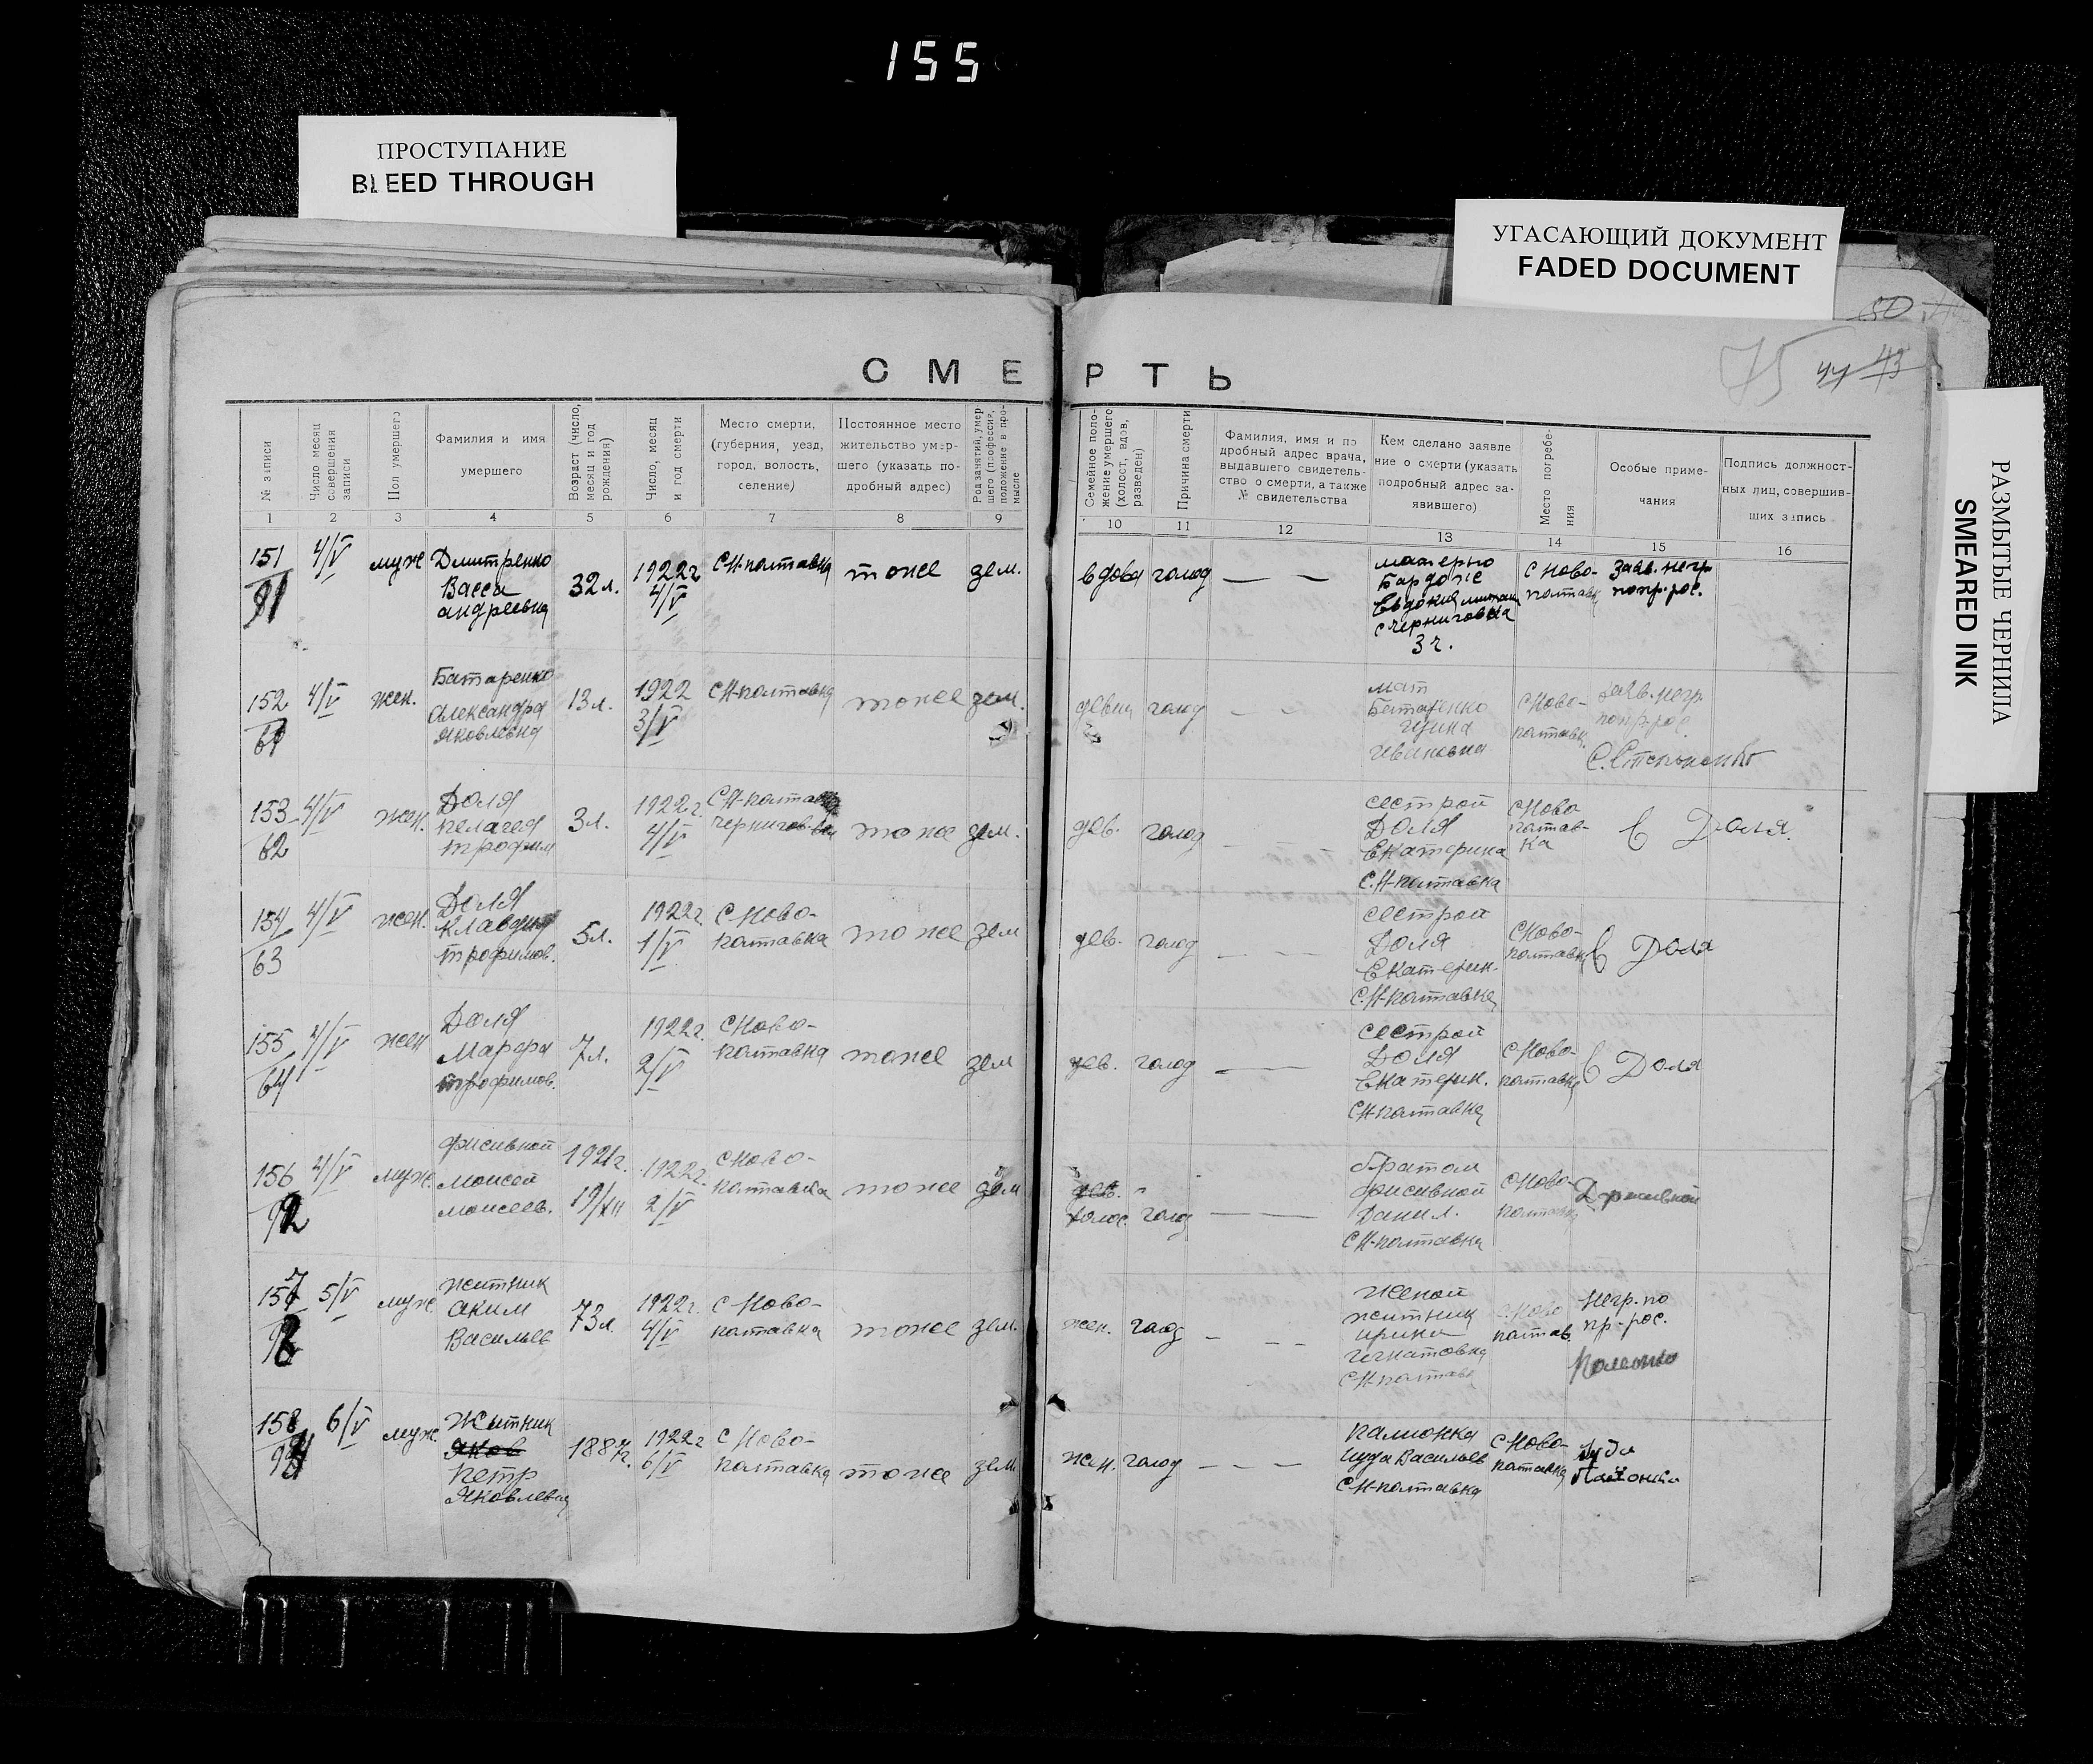 155
ПРОСТУПАНИЕ
BLEED THROUGH
УГАСАЮЩИЙ ДОКУМЕНТ
FADED DOCUMENT
РАЗМЫТЫЕ ЧЕРНИЛА
SMEARED INK
75 44 43
СМЕРТЬ
№ записи
Число месяц совершения записи
Пол умершего
Фамилия и имя умершего
Возраст (число, месяц и год рождения)
Число, месяц и год смерти
Место смерти, (губерния, уезд, город, волость, селение)
Постоянное место жительство умершего (указать подробный адрес)
Род занятий, умершего (профессия, положение в промысле
Семейное положение умершего (холост, вдов, разведен)
Причина смерти
Фамилия, имя и подробный адрес врача, выдавшего свидетельство о смерти, а также № свидетельства
Кем сделано заявление о смерти (указать подробный адрес заявившего)
Место погребения
Особые примечания
Подпись должностных лиц, совершивших запись
1 2 3 4 5 6 7 8 9 10 11 12 13 14 15 16
151/91 4/V муж Дмитренко Васса андреевна 32л. 1922г 4/V СН-полтавка тоже зем. вдова голод — — матерью Евдокия с черниговка 3 ч. с Ново-полтавк Заяв. негр попр. рос.
152/61 4/V жен. Батаренко Александра Яковлевна 13л. 1922 3/V СН-полтавка тоже зем. девиц голод - - мат Батаренко Ивановна с Ново-полтавк заяв. негр попр. рос.
153/62 4/V жен. Доля пелагея трофим 3л. 1922г. 4/V СН-полтавка тоже зем. дев. голод - сестрой Доля Екатерина С.Н-полтавка с Ново полтавка Е Доля.
154/63 4/V жен. Доля Клавдия трофимов. 5л. 1922г. 1/V с Ново-полтавка тоже зем дев. голод - — сестрой Доля Екатерин. С.Н-полтавка с Ново-полтавка Е Доля
155/64 4/V жен Доля Марфа трофимов. 7л. 1922г. 2/V с Ново-полтавка тоже зем дев. голод - — сестрой Доля Екатерин. СН-полтавка с Ново-полтавка Е Доля
156/92 4/V муж. моисей моисеев. 1921г. 19/XII 1922г. 2/V с Ново-полтавка тоже зем дев. холос. голод — — братом Данил. СН-полтавка с Ново-полтавка
157/93 5/V муж. житник аким Васильев 73л. 1922г. 4/V с Ново-полтавка тоже зем. жен. голод - - - женой житник ирина игнатовна СН-полтавк с Ново полтав. негр. по пр-рос.
158/94 6/V муж. Житник Яков петр Яковлевич 1887г. 1922г 6/V с Ново-полтавка тоже зем. жен. голод - - - иуда Васильев СН-полтавка с Ново-полтавка